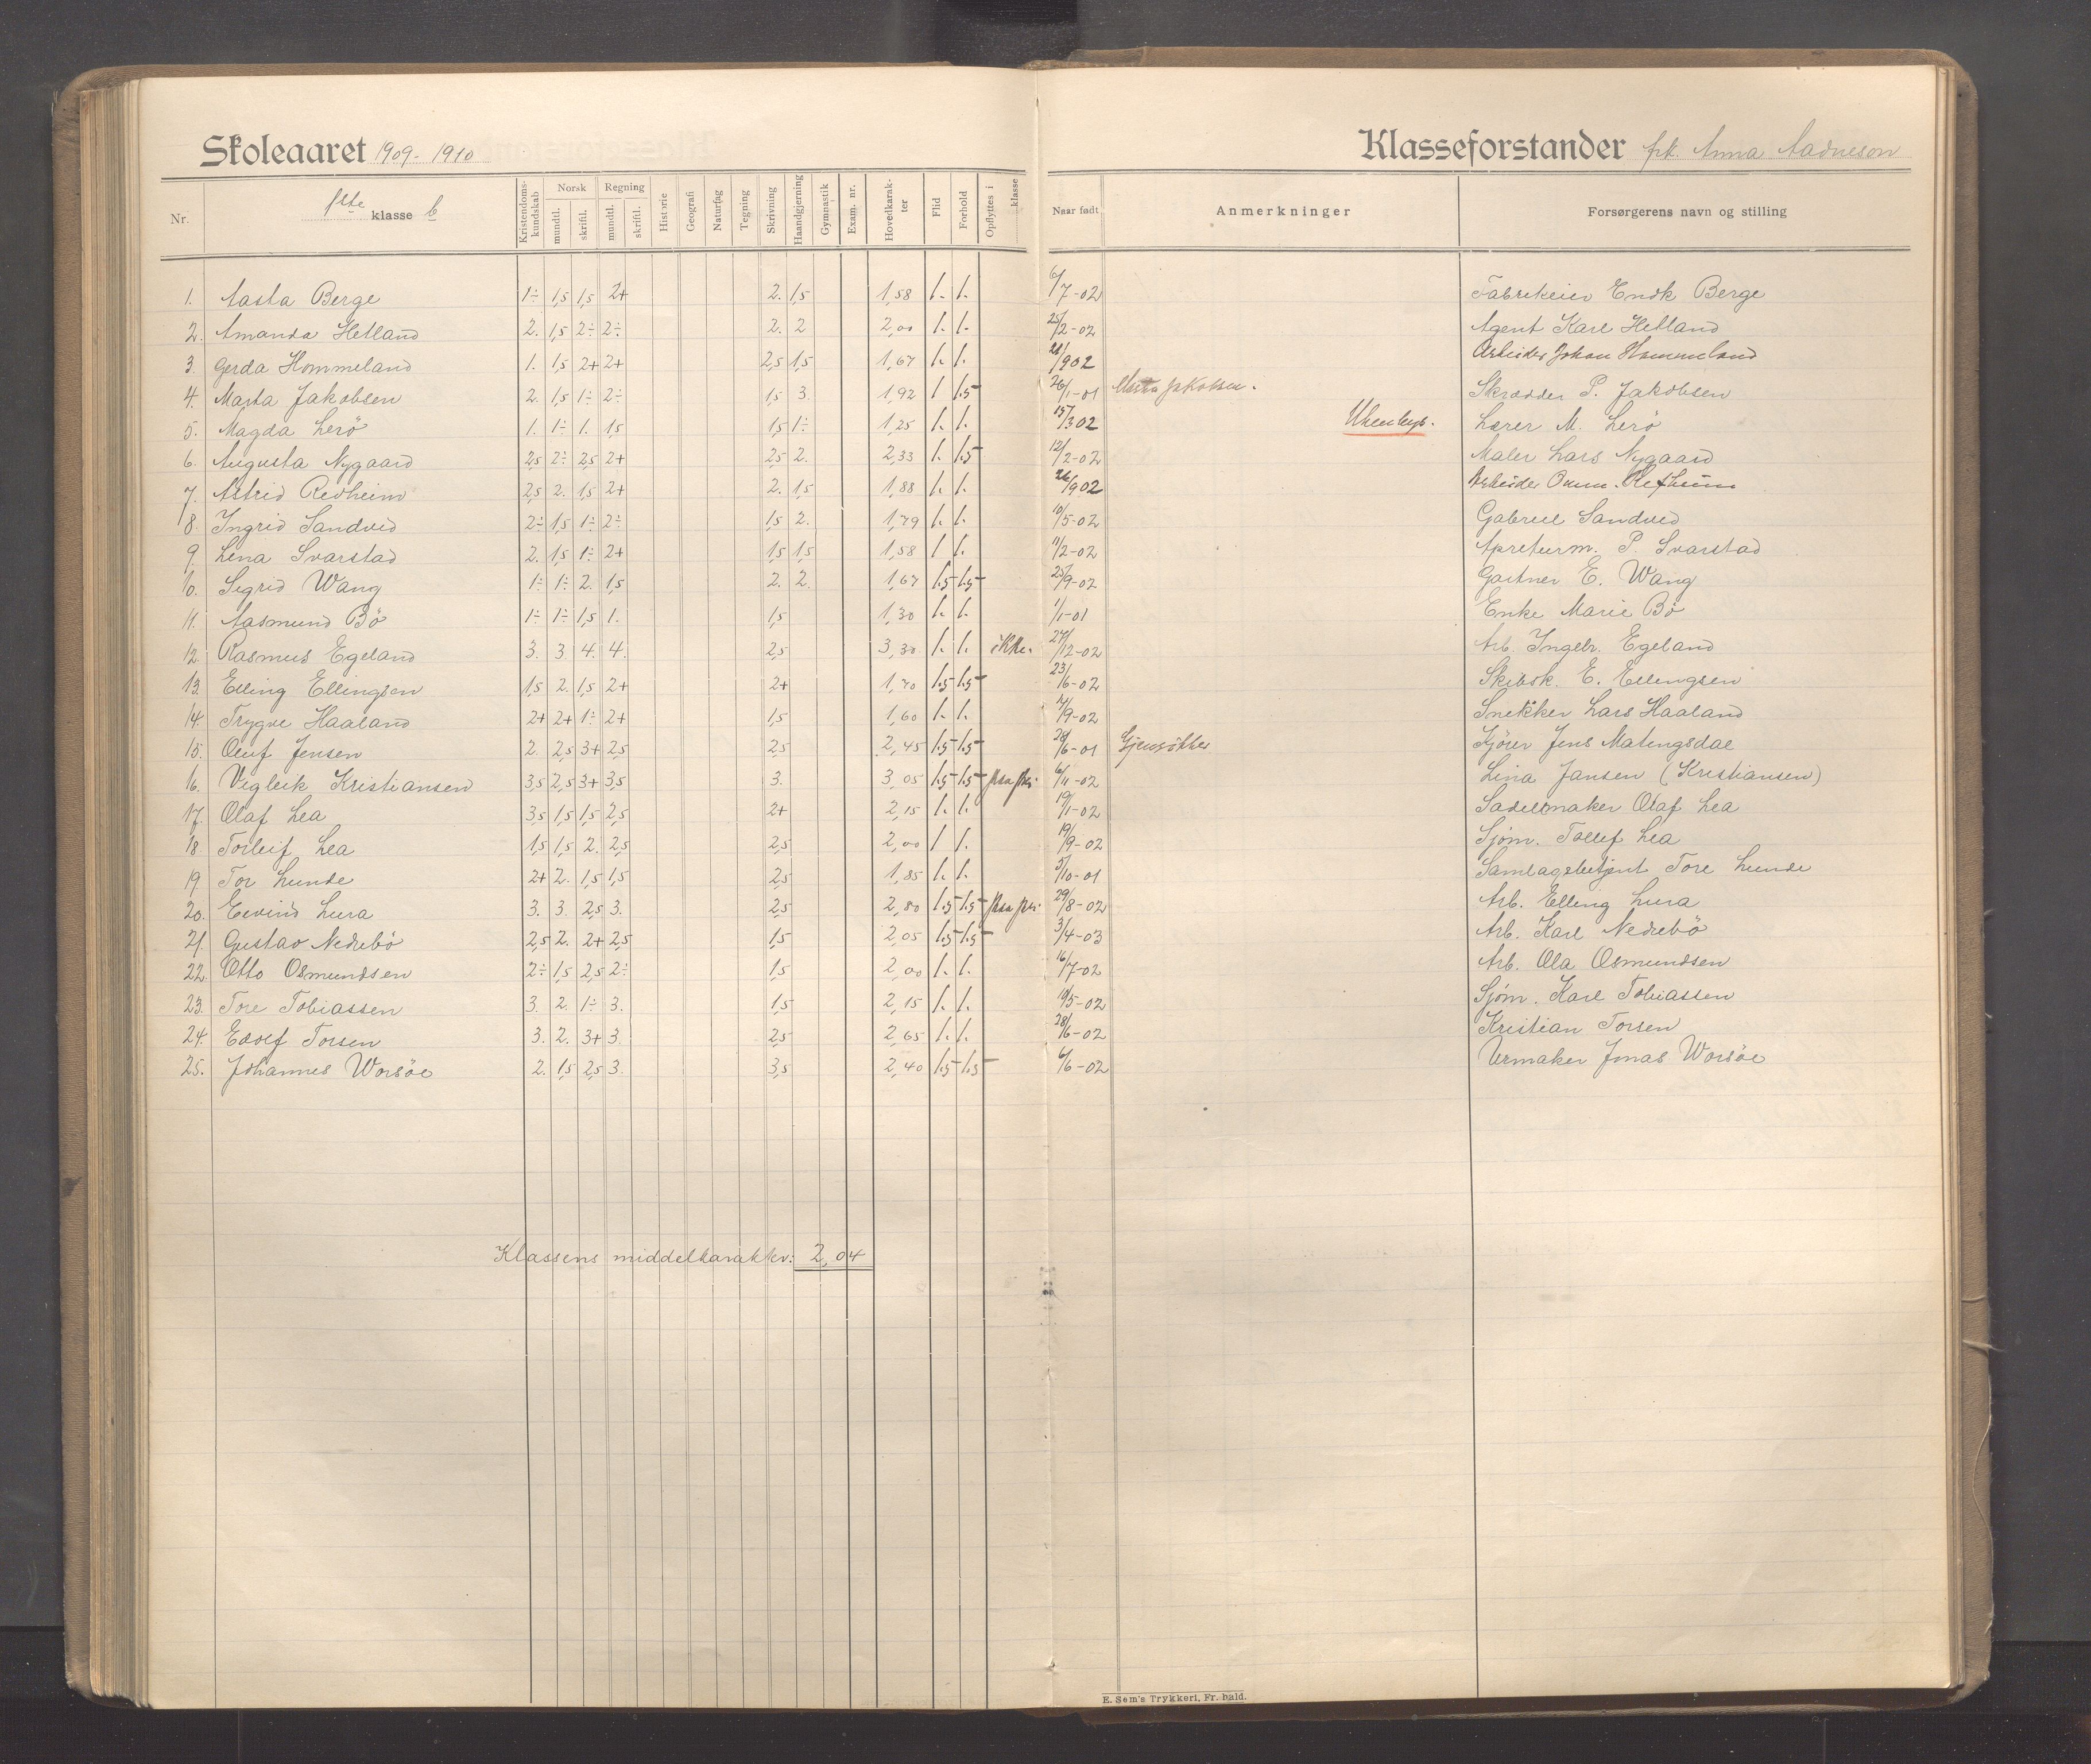 Skoleaaret 1909-1910
Klasseforstander frk. Anna Aadneson
Nr. 1ste klasse b Kristendomskundskab Norsk mundtl. skriftl. Regning mundtl. skriftl. Historie Geografi Naturfag Tegning Skrivning Haandgjerning Gymnastik Exam. nr. Hovedkarakter Flid Forhold Opflyttes i klasse Naar født Anmerkninger Forsørgerens navn og stilling
1. Aasta Berge 1÷ 1,5 1,5 2+ 2. 1,5 1,58 1. 1. 6/7-02 Fabrikeier Endk Berge
2. Amanda Hetland 2. 1,5 2÷ 2÷ 2. 2 2,00 1. 1. 25/2-02 Agent Karl Hetland
3. Gerda Hommeland 1. 1,5 2+ 2+ 2,5 1,5 1,67 1. 1. 21/902 Arbeider Johan Hommeland
4. Marta Jakobsen 2. 1,5 1÷ 2÷ 1,5 3. 1,92 1 1.5 26/1-01 Marta Jakobsen. Skrædder P. Jakobsen
5. Magda Lerö 1. 1÷ 1. 1,5 1,5 1÷ 1,25 1. 1. 15/302 Lærer M. Lerö
6. Augusta Nygaard 2,5 2÷ 2,5 2+ 2,5 2. 2,33 1. 1.5 12/2-02 Maler Lars Nygaard
7. Astrid Redheim 2,5 2. 1,5 2+ 2. 1,5 1,88 1. 1. 26/902 Arbeider
8. Ingrid Sandved 2÷ 1,5 1÷ 2÷ 1,5 2. 1,79 1. 1. 10/5-02 Gabriel Sandved
9. Lena Svarstad 2. 1,5 1÷ 2+ 1,5 1,5 1,58 1 1. 11/2-02 Apreturm. P. Svarstad
10. Sigrid Wang 1÷ 1÷ 2. 1,5 2. 2. 1,67 1.5 1.5 25/9-02 Gartner E. Wang
11. Aasmund Bö 1÷ 1÷ 1,5 1. 1,5 1,30 1. 1. 1/1-01 Enke Marie Bö
12. Rasmus Egeland 3. 3. 4. 4. 2,5 3,30 1. 1. ikke. 27/12-02 Arb. Ingebr. Egeland
13. Elling Ellingsen 1,5 2. 1,5 2+ 2+ 1,70 1.5 1.5 23/6-02 Skibsk. E. Ellingsen
14. Trygve Haaland 2+ 2+ 1÷ 2+ 1,5 1,60 1. 1. 14/9-02 Snekker Lars Haaland
15. Oluf Jensen 2. 2,5 3+ 2,5 2,5 2,45 1.5 1.5 28/6-01 Kjörer Jens Matingsdal
16. Vigleik Kristiansen 3,5 2,5 3+ 3,5 3. 3,05 1.5 1.5 paa prø. 6/11-02 Lina Jansen (Kristiansen)
17. Olaf Lea 3,5 1,5 1,5 2,5 2+ 2,15 1. 1. 19/1-02 Sadelmaker Olaf Lea
18. Torleif Lea 1,5 1,5 2. 2,5 2,5 2,00 1 1. 19/9-02 Sjöm. Tollef Lea
19. Tor Lunde 2+ 2. 1,5 1,5 2,5 1,85 1. 1. 5/10-01 Samlagsbetjent Tore Lunde
20. Eivind Lura 3. 3. 2,5 3. 2,5 2,80 1.5 1.5 paa prø. 29/8-02 Arb. Elling Lura
21. Gustav Nedrebö 2,5 2. 2+ 2,5 1,5 2,05 1.5 1.5 3/4-03 Arb. Karl Nedrebö
22. Otto Osmundsen 2÷ 1,5 2,5 2÷ 1,5 2,00 1. 1. 16/7-02 Arb. Ola Osmundsen
23. Tore Tobiassen 3. 2. 1÷ 3. 1,5 2,15 1. 1. 19/5-02 Sjöm. Karl Tobiassen
24. Edolf Torsen 3. 2. 3+ 3. 2,5 2,65 1. 1. 28/6-02 Kristian Torsen
25. Johannes Worsöe 2. 1,5 2,5 3. 3,5 2,40 1.5 1.5 6/6-02 Urmaker Jonas Worsöe
Klassens middelkarakter: 2,04
E. Sem's Trykkeri, Fr.hald.